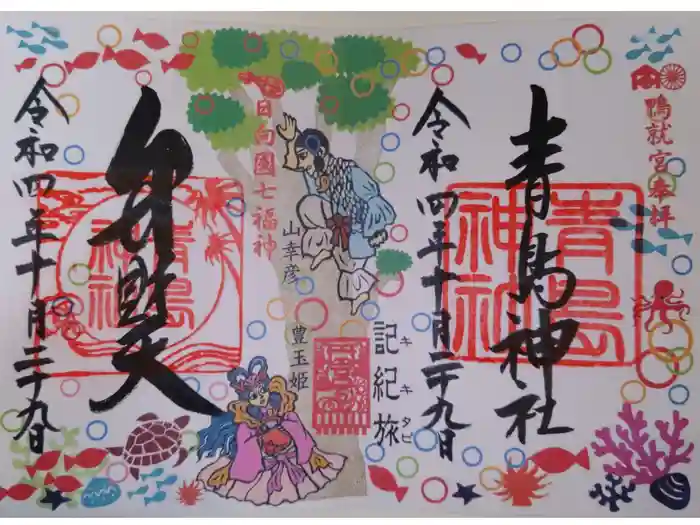 鴨就宮奉拝
青島神社
青島神社
令和四年十月二十九日
記紀旅
キキタビ
山幸彦
豊玉姫
日向國七福神
弁財天
青島神社
令和四年十月二十九日